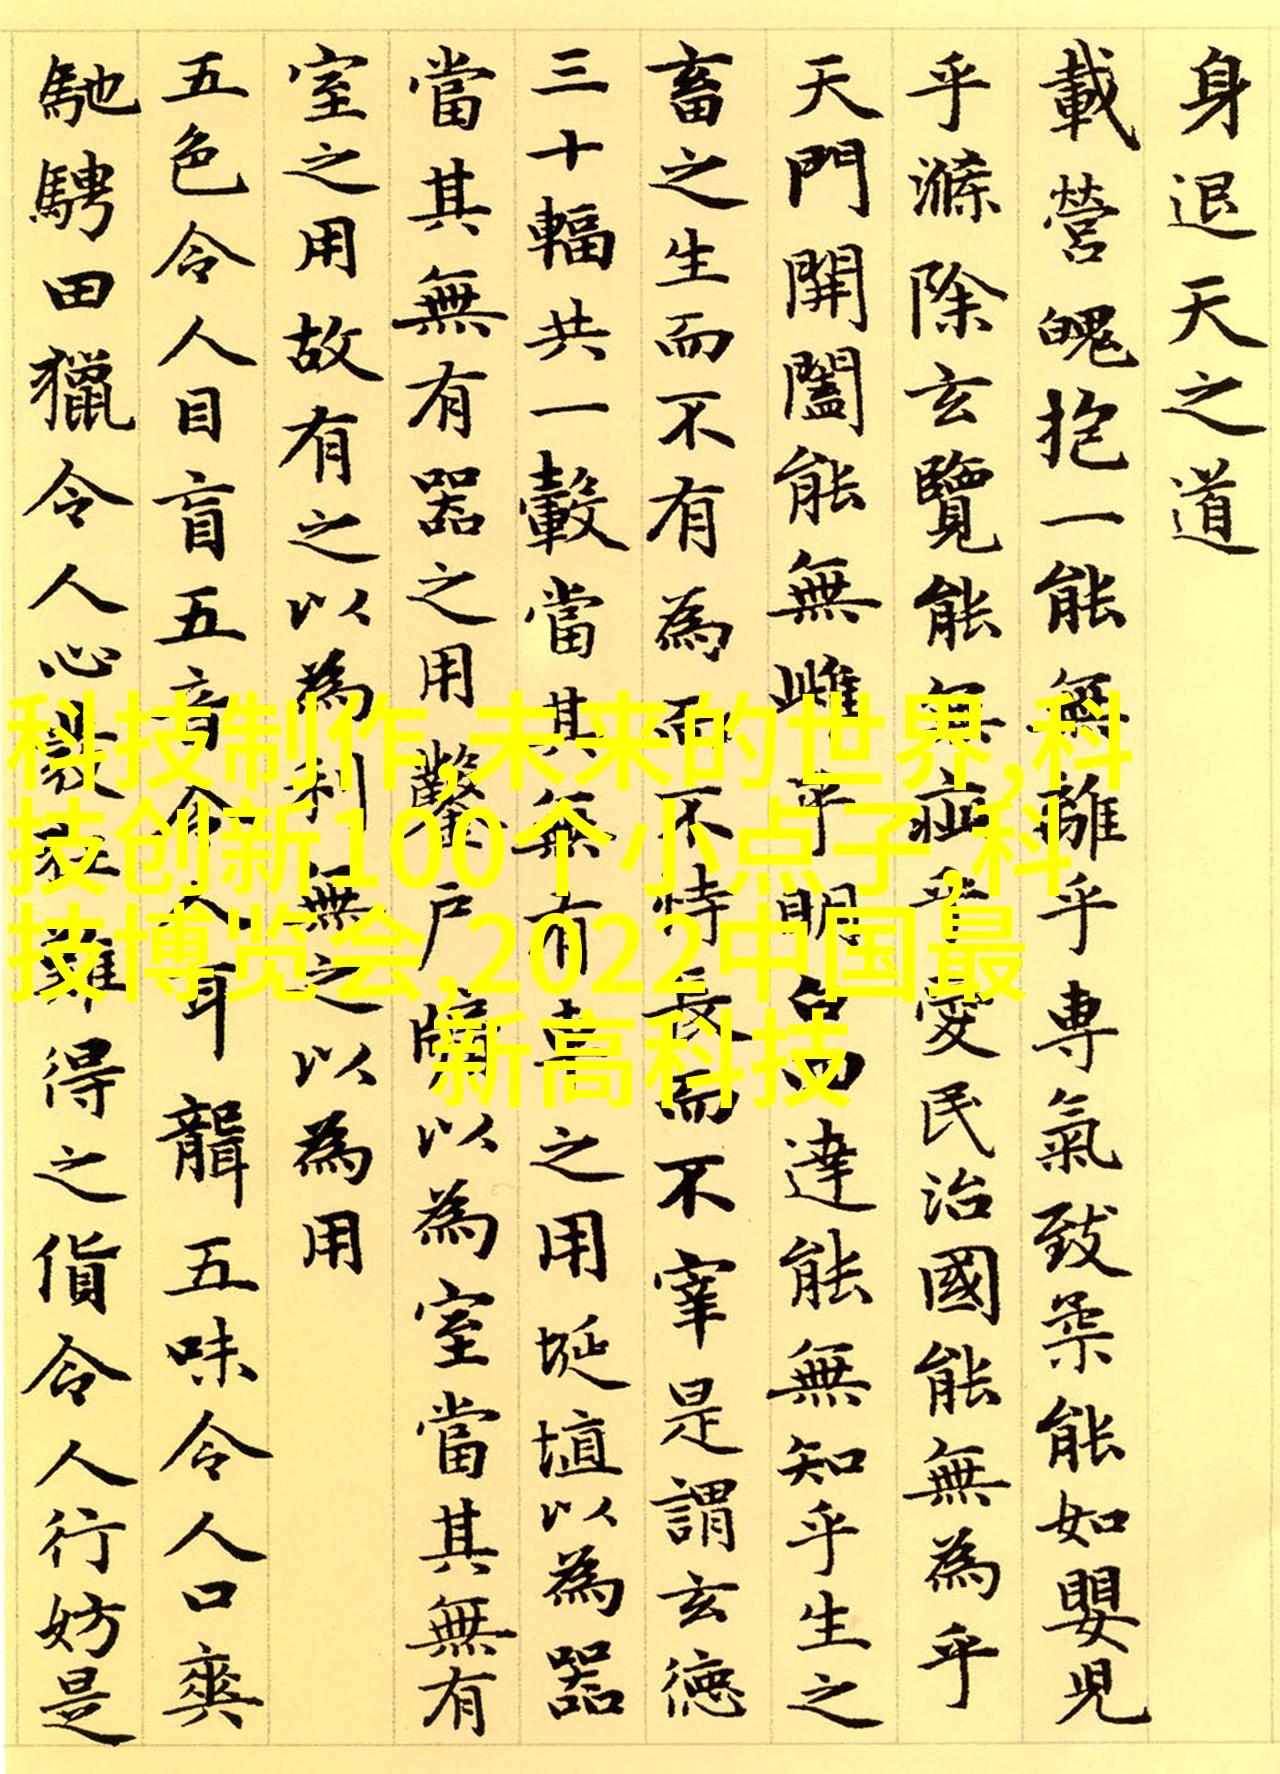 身退天之道
載營魄抱一能無離乎專氣致柔能如嬰兒
乎滌除玄覽能無疵乎愛民治國能無為乎
天門開闔能無雌乎明白四達能無知乎生之
畜之生而不有為而不恃長而不宰是謂玄德
三十輻共一轂當其無有車之用埏埴以為器
當其無有器之用鑿戶牖以為室當其無有
室之用故有之以為利無之以為用
五色令人目盲五音令人耳聾五味令人口爽
馳騁田獵令人心發狂難得之貨令人行妨是
科技制作,未来的世界,科
技创新100个小点子,科
技博览会,2022中国最
新高科技